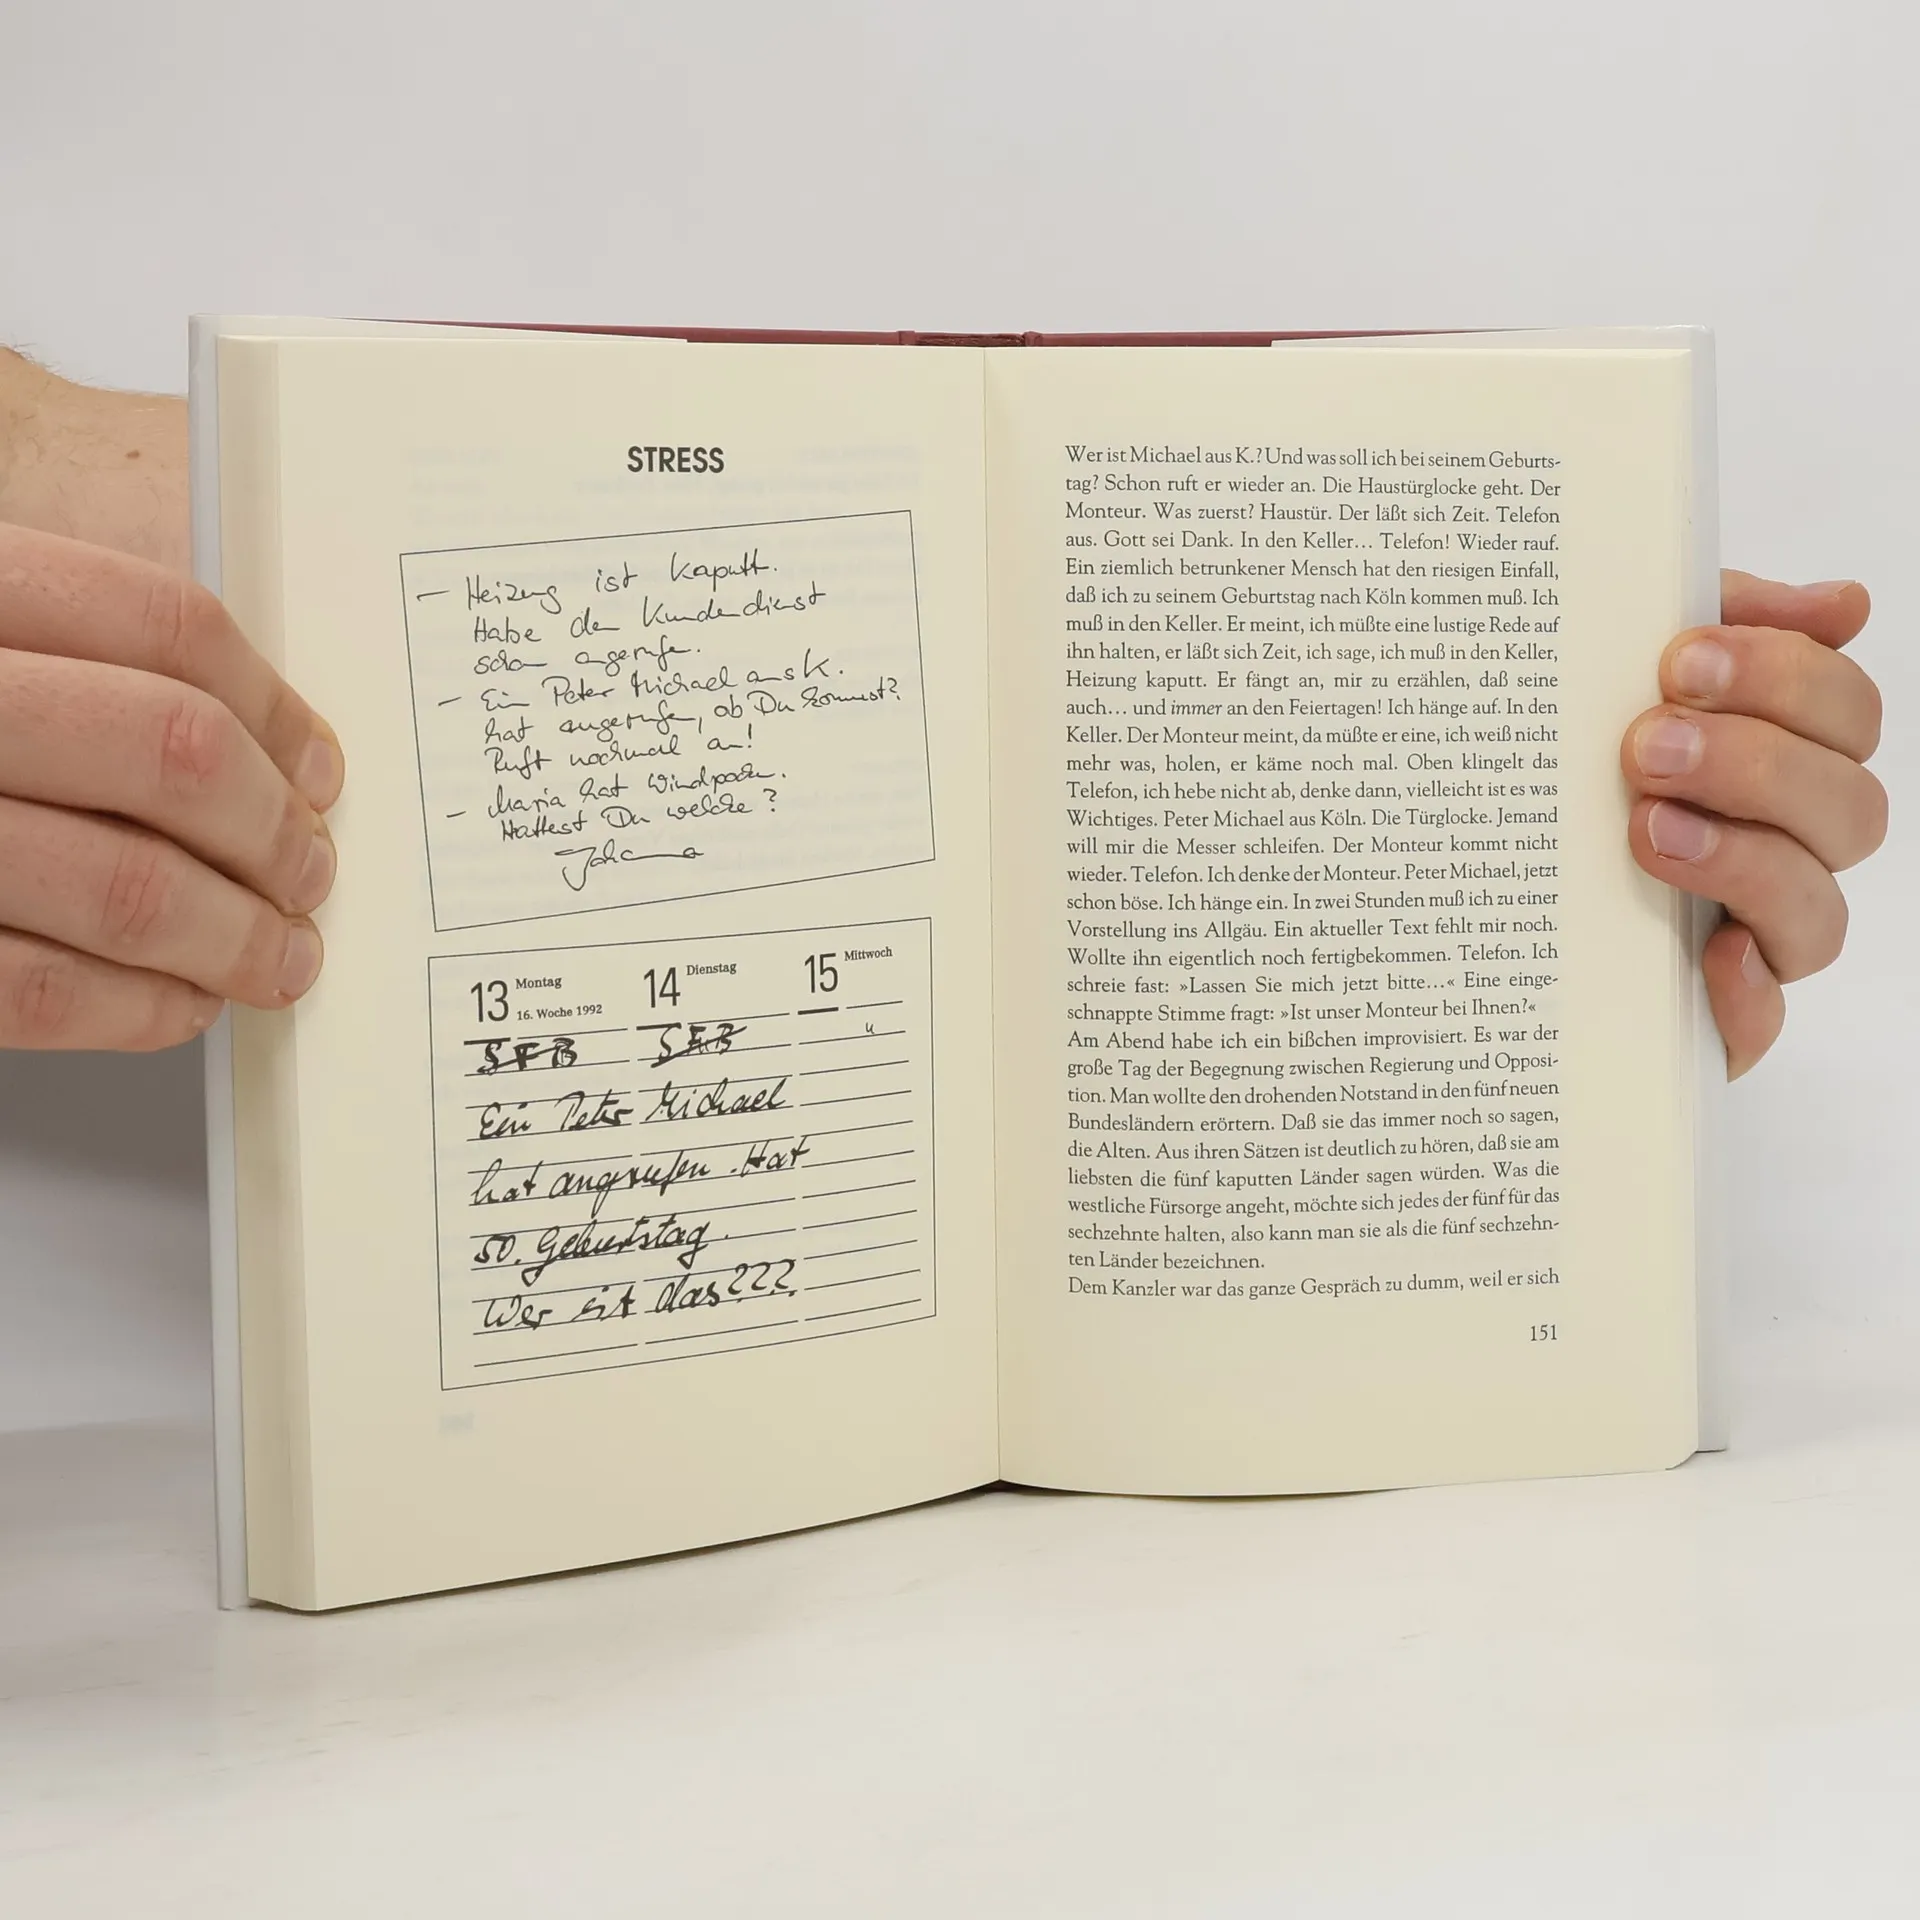 STRESS
– Heizung ist kaputt.
Habe den Kundendienst
schon angerufen.
– Ein Peter Michael aus K.
hat angerufen, ob Du kommst?
Ruft nochmal an!
– Maria hat Windpocken.
Hattest Du welche?
Johanna
13 Montag
16. Woche 1992
14 Dienstag
15 Mittwoch
SFB SFB
Ein Peter Michael
hat angerufen. Hat
50. Geburtstag.
Wer ist das???
Wer ist Michael aus K.? Und was soll ich bei seinem Geburts-
tag? Schon ruft er wieder an. Die Haustürglocke geht. Der
Monteur. Was zuerst? Haustür. Der läßt sich Zeit. Telefon
aus. Gott sei Dank. In den Keller… Telefon! Wieder rauf.
Ein ziemlich betrunkener Mensch hat den riesigen Einfall,
daß ich zu seinem Geburtstag nach Köln kommen muß. Ich
muß in den Keller. Er meint, ich müßte eine lustige Rede auf
ihn halten, er läßt sich Zeit, ich sage, ich muß in den Keller,
Heizung kaputt. Er fängt an, mir zu erzählen, daß seine
auch… und immer an den Feiertagen! Ich hänge auf. In den
Keller. Der Monteur meint, da müßte er eine, ich weiß nicht
mehr was, holen, er käme noch mal. Oben klingelt das
Telefon, ich hebe nicht ab, denke dann, vielleicht ist es was
Wichtiges. Peter Michael aus Köln. Die Türglocke. Jemand
will mir die Messer schleifen. Der Monteur kommt nicht
wieder. Telefon. Ich denke der Monteur. Peter Michael, jetzt
schon böse. Ich hänge ein. In zwei Stunden muß ich zu einer
Vorstellung ins Allgäu. Ein aktueller Text fehlt mir noch.
Wollte ihn eigentlich noch fertigbekommen. Telefon. Ich
schreie fast: »Lassen Sie mich jetzt bitte…« Eine einge-
schnappte Stimme fragt: »Ist unser Monteur bei Ihnen?«
Am Abend habe ich ein bißchen improvisiert. Es war der
große Tag der Begegnung zwischen Regierung und Opposi-
tion. Man wollte den drohenden Notstand in den fünf neuen
Bundesländern erörtern. Daß sie das immer noch so sagen,
die Alten. Aus ihren Sätzen ist deutlich zu hören, daß sie am
liebsten die fünf kaputten Länder sagen würden. Was die
westliche Fürsorge angeht, möchte sich jedes der fünf für das
sechzehnte halten, also kann man sie als die fünf sechzehn-
ten Länder bezeichnen.
Dem Kanzler war das ganze Gespräch zu dumm, weil er sich
151